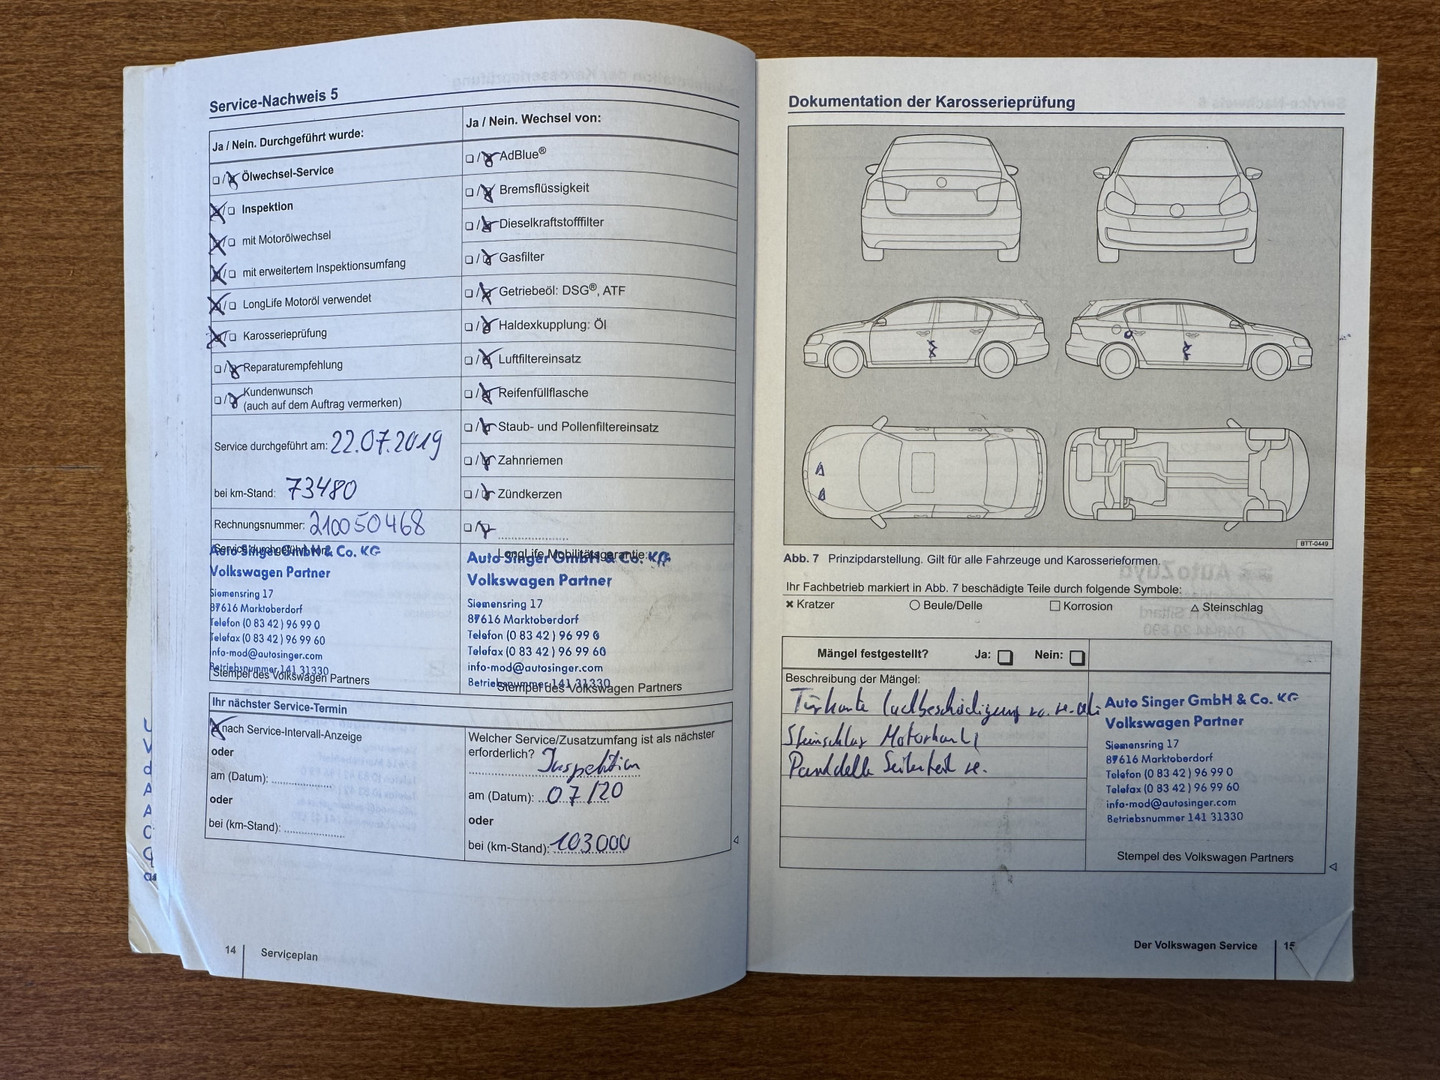 Service-Nachweis 5
Ja / Nein. Durchgeführt wurde:
Ölwechsel-Service
Inspektion
mit Motorölwechsel
mit erweitertem Inspektionsumfang
LongLife Motoröl verwendet
Karosserieprüfung
Reparaturempfehlung
Kundenwunsch
(auch auf dem Auftrag vermerken)
Service durchgeführt am: 22.07.2019
bei km-Stand: 73480
Rechnungsnummer: 210050468
Service durchgeführt von:
Auto Singer GmbH & Co. KG
Volkswagen Partner
Siemensring 17
87616 Marktoberdorf
Telefon (0 83 42) 96 99 0
Telefax (0 83 42) 96 99 60
info-mod@autosinger.com
Betriebsnummer 141 31330
Stempel des Volkswagen Partners
Ja / Nein. Wechsel von:
AdBlue®
Bremsflüssigkeit
Dieselkraftstofffilter
Gasfilter
Getriebeöl: DSG®, ATF
Haldexkupplung: Öl
Luftfiltereinsatz
Reifenfüllflasche
Staub- und Pollenfiltereinsatz
Zahnriemen
Zündkerzen
LongLife Mobilitätsgarantie:
Auto Singer GmbH & Co. KG
Volkswagen Partner
Siemensring 17
87616 Marktoberdorf
Telefon (0 83 42) 96 99 0
Telefax (0 83 42) 96 99 60
info-mod@autosinger.com
Betriebsnummer 141 31330
Stempel des Volkswagen Partners
Ihr nächster Service-Termin
nach Service-Intervall-Anzeige
oder
am (Datum):
oder
bei (km-Stand):
Welcher Service/Zusatzumfang ist als nächster
erforderlich? Inspektion
am (Datum): 07/20
oder
bei (km-Stand): 103000
14 Serviceplan
Dokumentation der Karosserieprüfung
BTT-0449
Abb. 7 Prinzipdarstellung. Gilt für alle Fahrzeuge und Karosserieformen.
Ihr Fachbetrieb markiert in Abb. 7 beschädigte Teile durch folgende Symbole:
Kratzer Beule/Delle Korrosion Steinschlag
Mängel festgestellt? Ja: Nein:
Beschreibung der Mängel:
Türkante Lackbeschädigung
Steinschlag Motorhaube
Parkdelle Seitenteil re.
Auto Singer GmbH & Co. KG
Volkswagen Partner
Siemensring 17
87616 Marktoberdorf
Telefon (0 83 42) 96 99 0
Telefax (0 83 42) 96 99 60
info-mod@autosinger.com
Betriebsnummer 141 31330
Stempel des Volkswagen Partners
Der Volkswagen Service 15